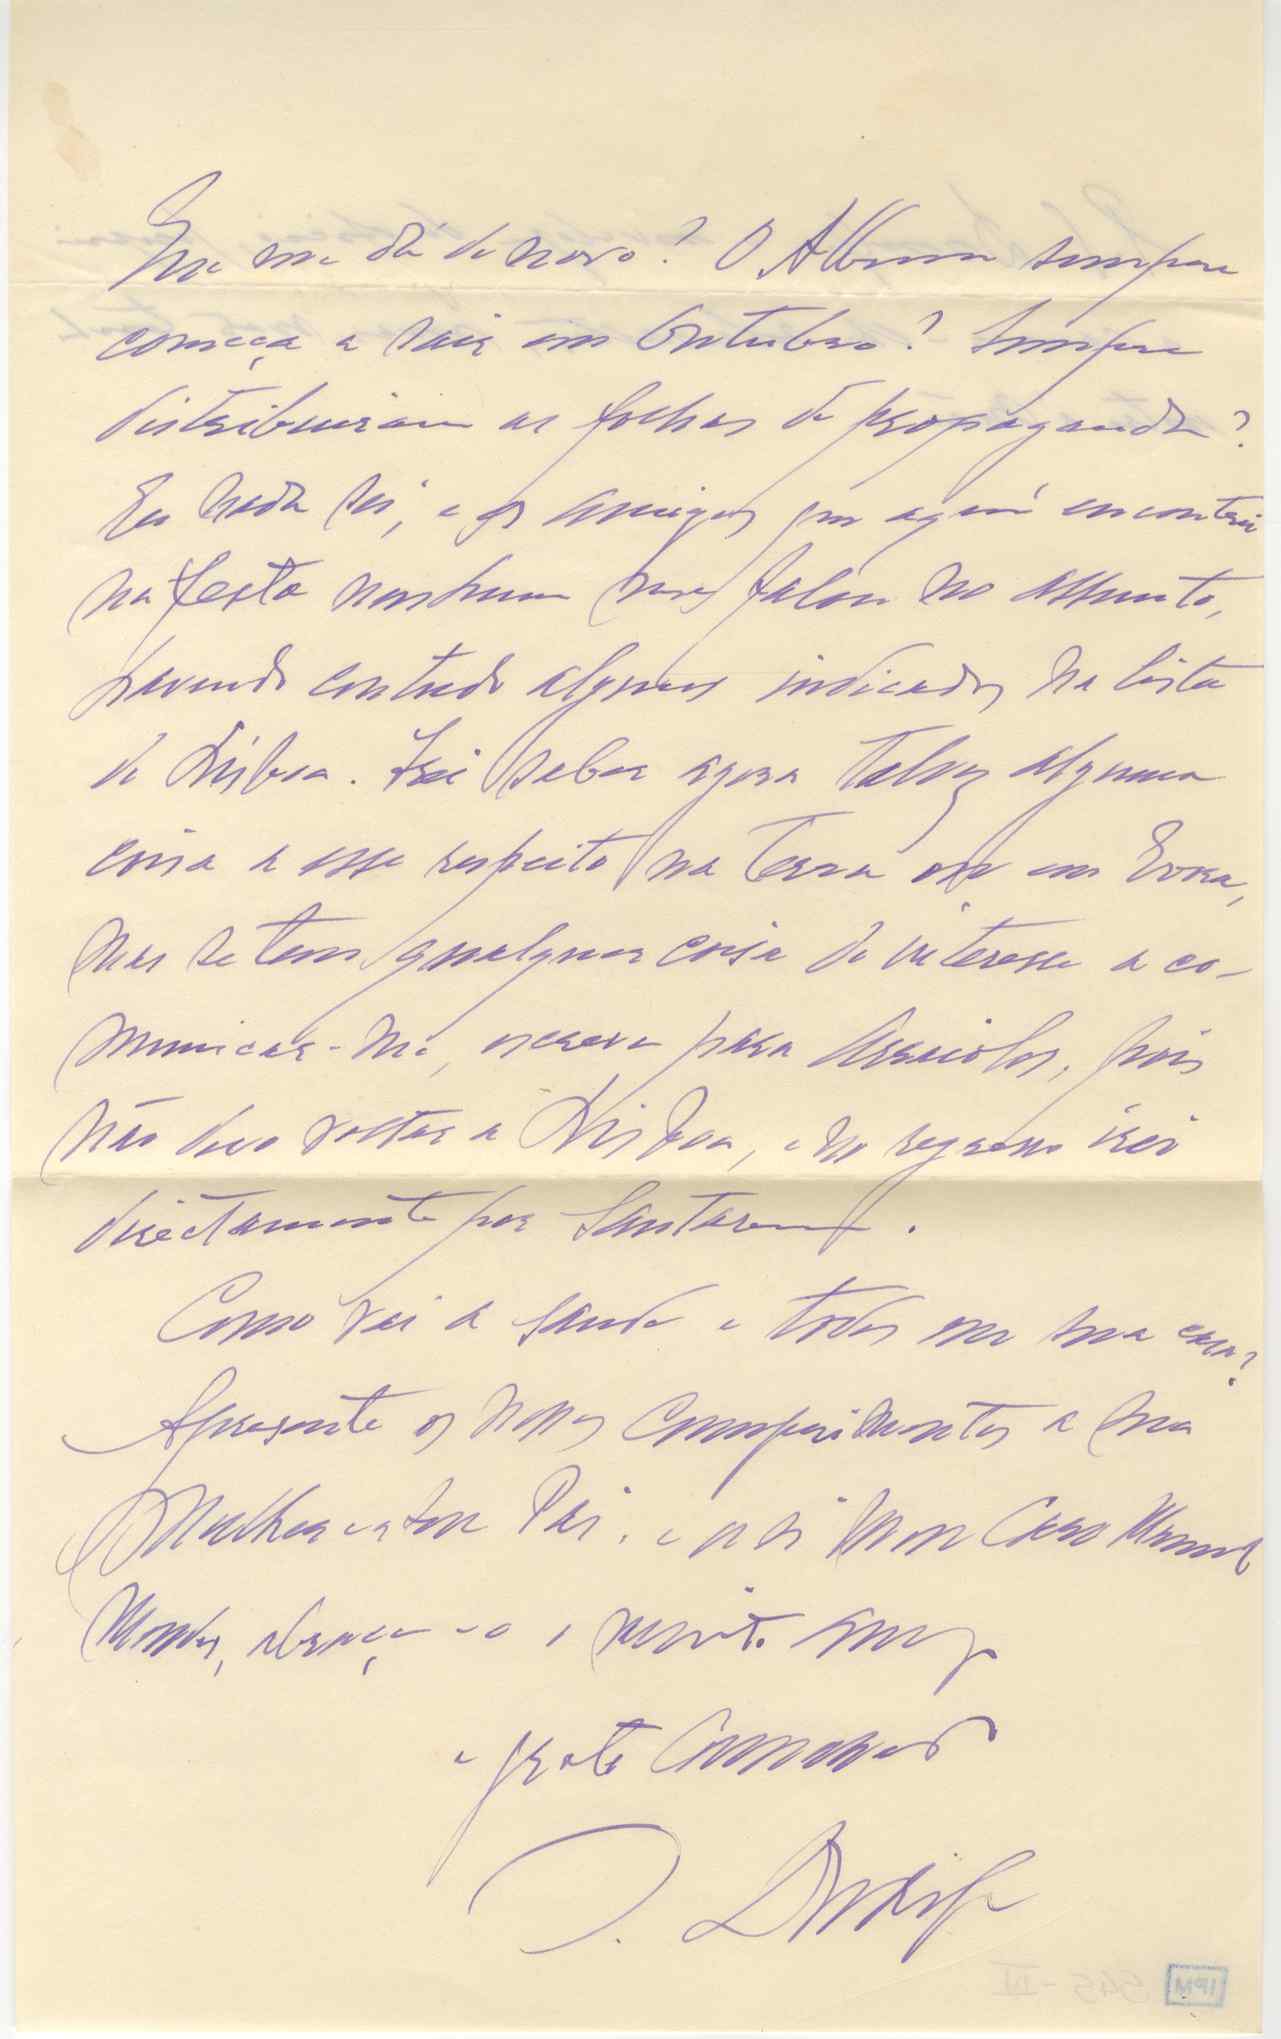 Que me dá de novo? O Album sempre
começa a sair em Outubro? Sempre
distribuiram as folhas de propaganda?
Eu nada sei, e os amigos que aqui encontrei
na festa nenhum me falou no assunto,
havendo contudo alguns indicados na lista
de Lisboa. Irei saber agora talvez alguma
coisa a esse respeito na terra ou em Evora,
mas se tem qualquer coisa de interesse a co-
municar-me, escreva para Arraiolos, pois
não devo voltar a Lisboa, e no regresso irei
directamente por Santarem.
Como vai a saude e todos em sua casa?
Apresente os nossos cumprimentos a sua
Mulher e a seu Pai, e a si meu Caro Manuel
Mendes, abraça-o o muito amgo
e grato Camarada